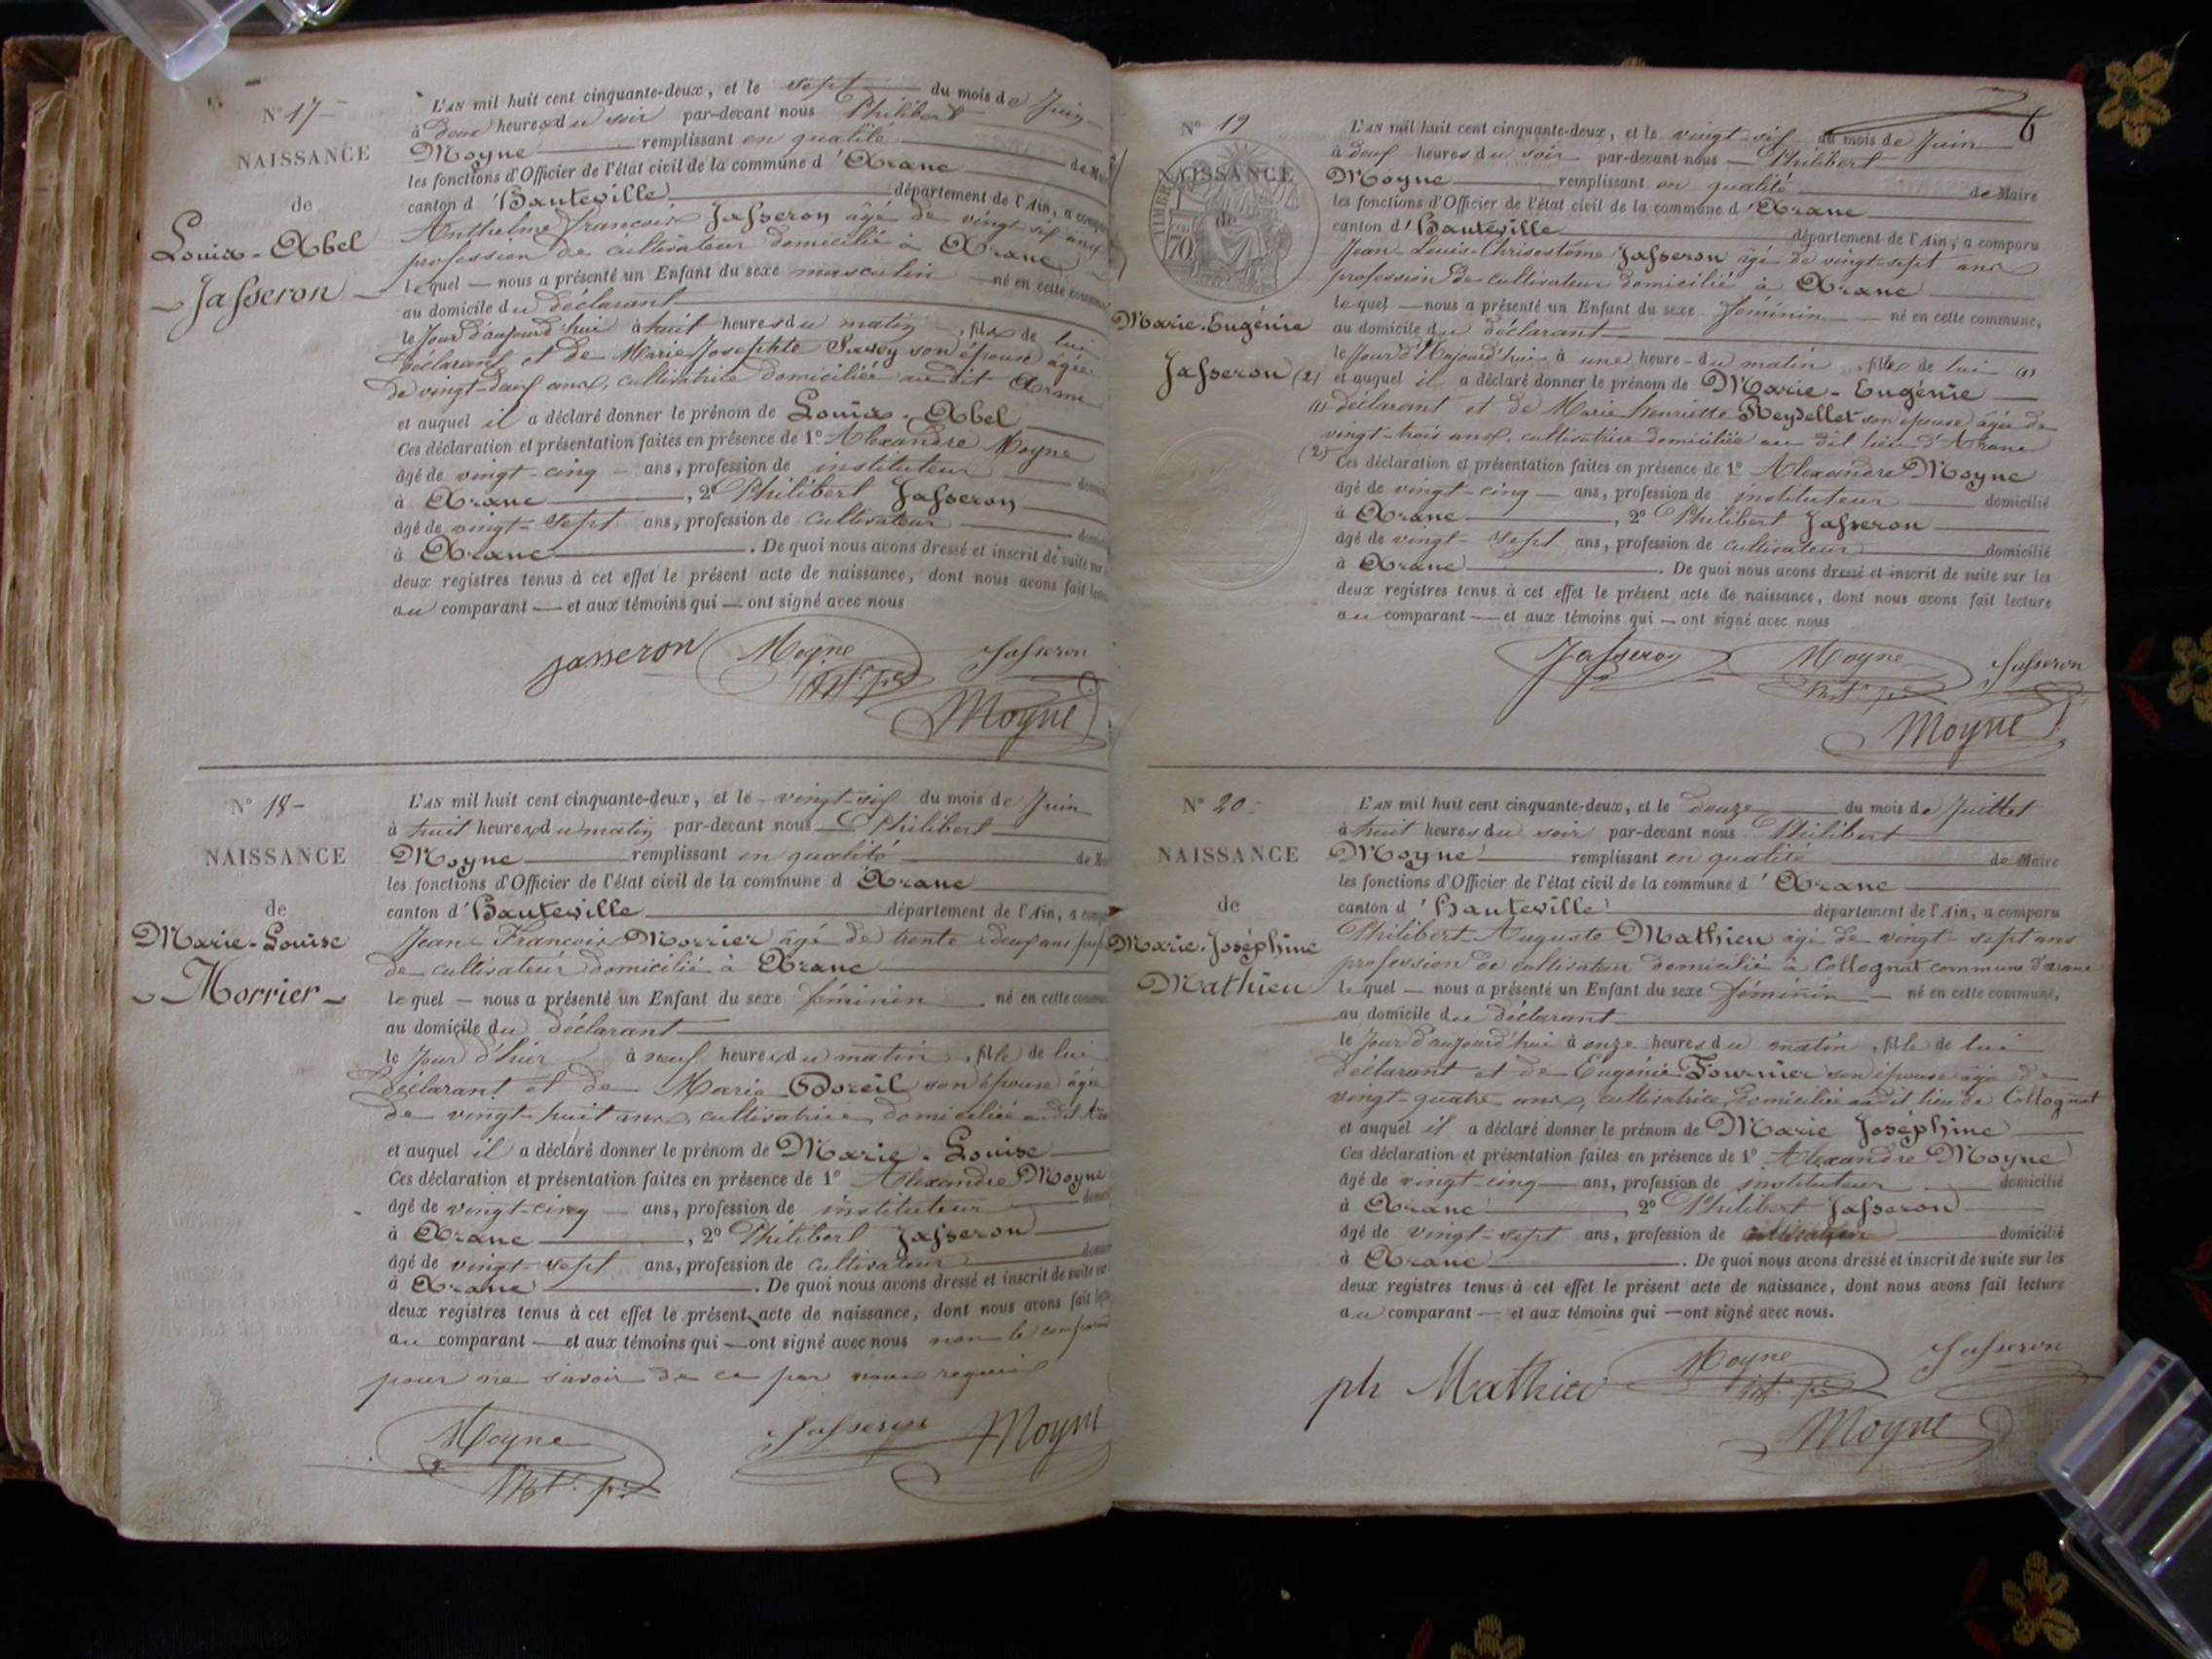 N° 17
NAISSANCE
de
Louis-Abel
Jasseron
L'AN mil huit cent cinquante-deux, et le sept du mois de Juin
à deux heures du soir par-devant nous Philibert
Moyne remplissant en qualité de
les fonctions d'Officier de l'état civil de la commune d'Aranc
canton d'Hauteville département de l'Ain, a
Anthelme François Jasseron âgé de vingt six ans
profession de cultivateur domicilié à Aranc
lequel — nous a présenté un Enfant du sexe masculin né en cette
au domicile du déclarant
le Jour d'aujourd'hui à huit heures du matin, fils de lui
déclarant et de Marie Josephte son épouse âgée
de vingt-deux ans, cultivatrice domiciliée audit Aranc
et auquel il a déclaré donner le prénom de Louis-Abel
Ces déclaration et présentation faites en présence de 1° Alexandre Moyne
âgé de vingt-cinq ans, profession de instituteur
à Aranc, 2° Philibert Jasseron
âgé de vingt-sept ans, profession de cultivateur
à Aranc. De quoi nous avons dressé et inscrit de suite sur
deux registres tenus à cet effet le présent acte de naissance, dont nous avons fait
au comparant — et aux témoins qui — ont signé avec nous
jasseron Moyne Jasseron
Moyne
N° 18
NAISSANCE
de
Marie-Louise
Morrier
L'AN mil huit cent cinquante-deux, et le vingt-six du mois de Juin
à huit heures du matin par-devant nous Philibert
Moyne remplissant en qualité de
les fonctions d'Officier de l'état civil de la commune d Aranc
canton d'Hauteville département de l'Ain, a
Jean François Morrier âgé de trente deux ans
de cultivateur domicilié à Aranc
lequel — nous a présenté un Enfant du sexe féminin né en cette
au domicile du déclarant
le Jour d'hier à neuf heures du matin, fille de lui
déclarant et de Marie son épouse âgée
de vingt-huit ans, cultivatrice domiciliée audit
et auquel il a déclaré donner le prénom de Marie-Louise
Ces déclaration et présentation faites en présence de 1° Alexandre Moyne
âgé de vingt-cinq — ans, profession de instituteur
à Aranc, 2° Philibert Jasseron
âgé de vingt-sept ans, profession de cultivateur
à Aranc. De quoi nous avons dressé et inscrit de suite sur
deux registres tenus à cet effet le présent acte de naissance, dont nous avons fait
au comparant — et aux témoins qui — ont signé avec nous non le
pour ne savoir de ce par nous requis
Moyne Jasseron Moyne
6
N° 19
NAISSANCE
de
TIMBRE
70
Marie-Eugénie
Jasseron (2)
L'AN mil huit cent cinquante-deux, et le vingt-six du mois de Juin
à deux heures du soir par-devant nous — Philibert
Moyne remplissant en qualité de Maire
les fonctions d'Officier de l'état civil de la commune d'Aranc
canton d'Hauteville département de l'Ain, a comparu
Jean-Louis-Chrisostôme Jasseron âgé de vingt-sept ans
profession de cultivateur domicilié à Aranc
lequel — nous a présenté un Enfant du sexe féminin — né en cette commune,
au domicile du déclarant
le Jour d'Aujourd'hui à une heure du matin, fille de lui (1)
et auquel il a déclaré donner le prénom de Marie-Eugénie
(1) déclarant et de Marie Henriette Reydellet son épouse âgée de
vingt-trois ans, cultivatrice domiciliée au dit lieu d'Aranc
(2) Ces déclaration et présentation faites en présence de 1° Alexandre Moyne
âgé de vingt-cinq — ans, profession de instituteur domicilié
à Aranc, 2° Philibert Jasseron
âgé de vingt-sept ans, profession de cultivateur domicilié
à Aranc. De quoi nous avons dressé et inscrit de suite sur les
deux registres tenus à cet effet le présent acte de naissance, dont nous avons fait lecture
au comparant — et aux témoins qui — ont signé avec nous
Jasseron Moyne Jasseron
Moyne
N° 20
NAISSANCE
de
Marie-Joséphine
Mathieu
L'AN mil huit cent cinquante-deux, et le douze du mois de Juillet
à huit heures du soir par-devant nous Philibert
Moyne remplissant en qualité de Maire
les fonctions d'Officier de l'état civil de la commune d'Aranc
canton d'Hauteville département de l'Ain, a comparu
Philibert-Auguste Mathieu âgé de vingt-sept ans
profession de cultivateur domicilié à Collognat commune d'aranc
lequel — nous a présenté un Enfant du sexe féminin — né en cette commune,
au domicile du déclarant
le Jour d'aujourd'hui à onze heures du matin, fille de lui
déclarant et de Eugénie Fournier son épouse âgée de
vingt-quatre ans, cultivatrice, domiciliée audit lieu de Collognat
et auquel il a déclaré donner le prénom de Marie Joséphine
Ces déclaration et présentation faites en présence de 1° Alexandre Moyne
âgé de vingt-cinq — ans, profession de instituteur domicilié
à Aranc, 2° Philibert Jasseron
âgé de vingt-sept ans, profession de cultivateur domicilié
à Aranc. De quoi nous avons dressé et inscrit de suite sur les
deux registres tenus à cet effet le présent acte de naissance, dont nous avons fait lecture
au comparant — et aux témoins qui — ont signé avec nous.
ph Mathieu Moyne Jasseron
Moyne